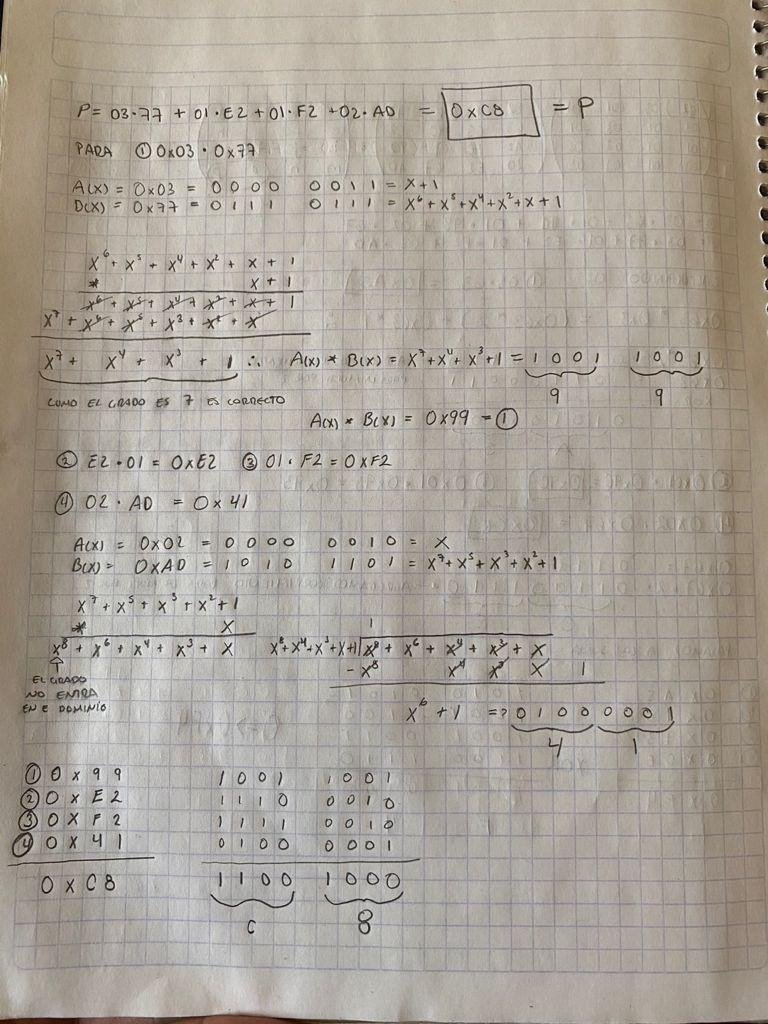 P = 03·77 + 01·E2 + 01·F2 + 02·AD = 0xC8 = P
PARA ① 0x03 · 0x77
A(x) = 0x03 = 0 0 0 0 0 0 1 1 = x+1
D(x) = 0x77 = 0 1 1 1 0 1 1 1 = x⁶+x⁵+x⁴+x²+x+1
x⁶ + x⁵ + x⁴ + x² + x + 1
* x + 1
x⁶ + x⁵ + x⁴ + x² + x + 1
x⁷ + x⁶ + x⁵ + x³ + x² + x
x⁷ + x⁴ + x³ + 1 ∴ A(x) * B(x) = x⁷+x⁴+x³+1 = 1 0 0 1 1 0 0 1
9 9
COMO EL GRADO ES 7 ES CORRECTO
A(x) * B(x) = 0x99 = ①
② E2·01 = 0xE2 ③ 01·F2 = 0xF2
④ 02·AD = 0x41
A(x) = 0x02 = 0 0 0 0 0 0 1 0 = x
B(x) = 0xAD = 1 0 1 0 1 1 0 1 = x⁷+x⁵+x³+x²+1
x⁷ + x⁵ + x³ + x² + 1
* x
x⁸ + x⁶ + x⁴ + x³ + x
EL GRADO
NO ENTRA
EN E DOMINIO
1
x⁸+x⁴+x³+x+1 x⁸ + x⁶ + x⁴ + x³ + x
- x⁸ x⁴ x³ x 1
x⁶ + 1 => 0 1 0 0 0 0 0 1
4 1
① 0 x 9 9 1 0 0 1 1 0 0 1
② 0 x E 2 1 1 1 0 0 0 1 0
③ 0 x F 2 1 1 1 1 0 0 1 0
④ 0 x 4 1 0 1 0 0 0 0 0 1
0 x C 8 1 1 0 0 1 0 0 0
C 8